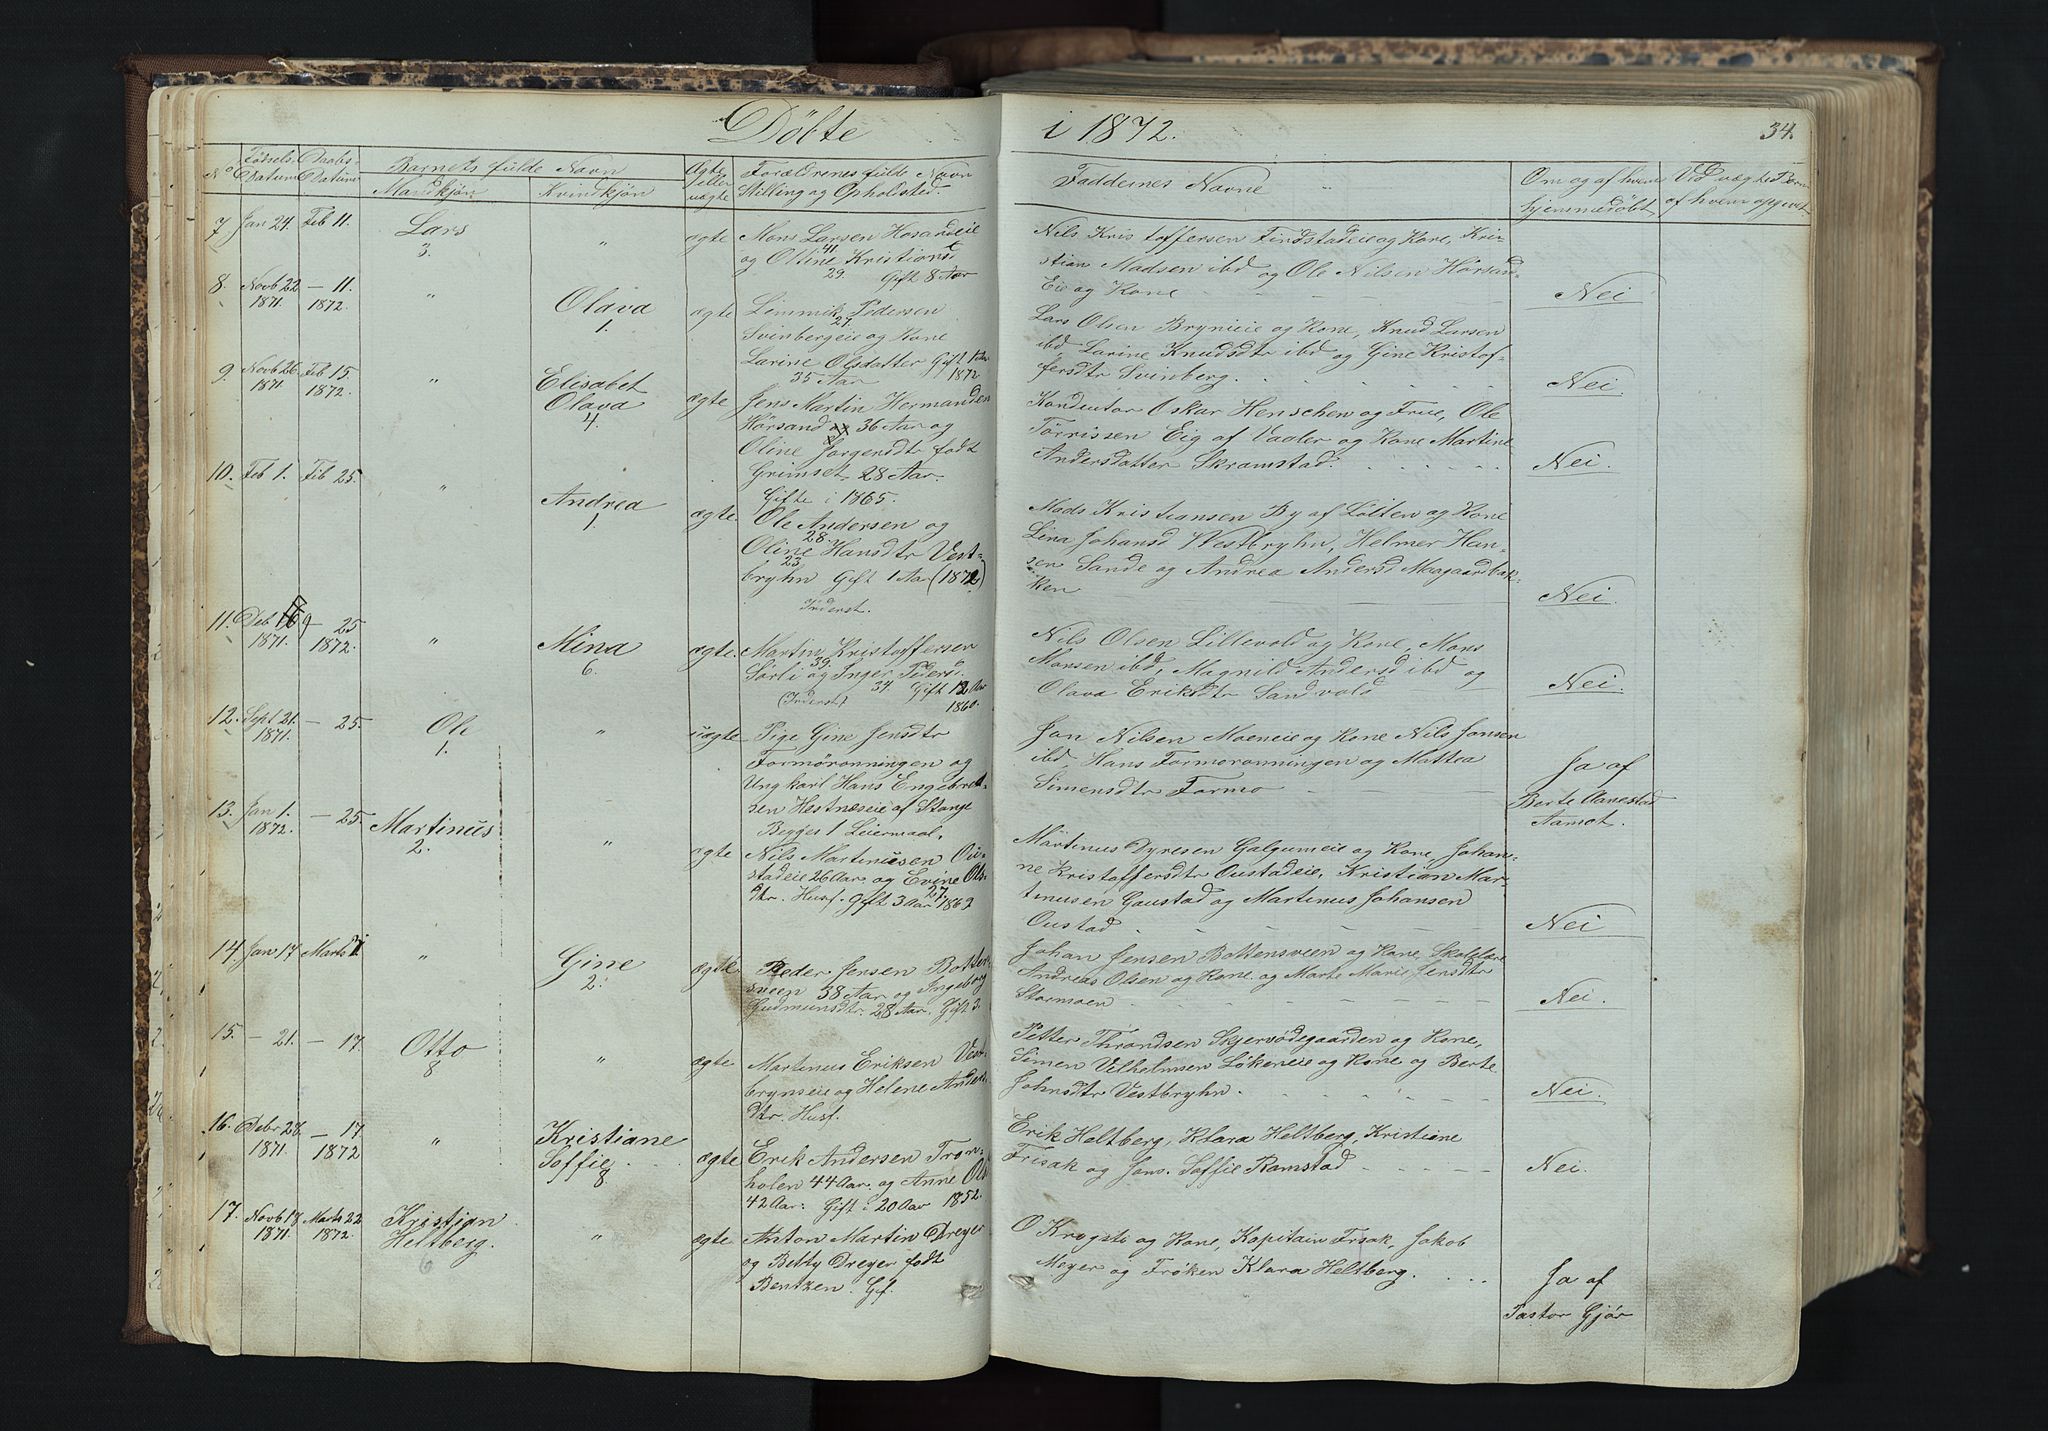 Döbte i 1872. 34.
No Födsels Datum Daabs Datum Barnets fulde Navn Mandkjön Kvindkjön Ægte eller uægte Forældrenes fulde Navn Stilling og Opholdsted. Faddernes Navne Om og af hvem hjemmedöbt
7 Jan 24. Feb 11. Lars 3. " ægte Mons Larsen Hosandeie
og Oline Kristiansd
29. Gift 8 Aar
Nils Kristoffersen Findstadeie og Kone, Kri-
stian Madsen ibd og Ole Nilsen Hörsand
Eie og Kone Nei
8. Novb 22 1871. — 11. 1872. " Olava 1. ægte Lemmik Pedersen
27.
Svinbergeie og Kone
Larine Olsdatter Gift 1 Aar
35 Aar 1872
Lars Olsen Brynieie og Kone, Knud Larsen
ibd, Larine Knudsdtr ibd og Gine Kristof-
fersdtr Svinberg. Nei
9. Novb 26. 1871 Feb 15. 1872. " Elisabet Olava 4. ægte Jens Martin Hermansen
Hörsand 36 Aar og
Oline Jorgensdtr födt
Grimset. 28 Aar.
Gifte i 1865.
Konductor Oskar Henschen og Frue, Ole
Törrissen Eig af Vaaler og Kone Martine
Andersdatter Skramstad. Nei.
10. Feb 1. Feb 25. " Andrea 1 ægte Ole Andersen og
28.
Oline Hansdtr Vest-
23
bryhn Gift 1 Aar (1872)
Inderst.
Mads Kristiansen By af Löiten og Kone
Lina Johansd Vestbryhn, Helmer Han-
sen Sande og Andrea Andersd Maagaardbak-
ken Nei.
11. Deb 1871. — 25 1872. " Mina 6. ægte. Martin Kristoffersen
39.
Sörli og Inger Peders.
34. Gift 12 Aar
(Inderst) 1860.
Nils Olsen Lillevold og Kone, Mons
Monsen ibd, Magnild Andersd ibd og
Olava Eriksdtr Sandvold Nei.
12. Sept 21. 1871. — 25. Ole 1. " uægte Pige Gine Jensdtr
Formöronningen og
Ungkarl Hans Engebret-
sen Hestnæseie af Stange
Begges 1 Leiermaal.
Jon Nilsen Moeneie og Kone Nils Jonsen
ibd, Hans Formoronningen og Mattea
Simensdtr Formo Ja af
Berte Aanestad
Aamot.
13. Jan 1. 1872. — 25. Martinus 2. " ægte Nils Martinusen Ou-
stadeie 26 Aar. og Evine Ols-
27.
dtr. Husf. Gift 3 Aar 1869
Martinus Dyresen Galgumeie og Kone, Johan-
ne Kristoffersdtr Oustadeie, Kristian Mar-
tinusen Gaustad og Martinus Johansen
Oustad Nei
14. Jan 17. Marts " Gine 2. ægte Peder Jensen Botten-
sveen 38 Aar og Ingeborg
Gudmunsdtr. 28 Aar. Gift 3.
Johan Jensen Bottensveen og Kone, Skolelære
Andreas Olsen og Kone og Marte Marie Jensdtr
Stormoen Nei.
15. — 21. — 17. Otto 8 " ægte Martinus Eriksen Vest-
brynseie og Helene Anders-
dtr. Husf.
Petter Throndsen Skjervödegaarden og Kone,
Simen Vilhelmsen Lökeneie og Kone og Berte
Johnsdtr Vestbryhn. Nei.
16. Debr 28. 1871. — 17. 1872 " Kristiane Soffie. 8 ægte Erik Andersen Tron-
holen 44 Aar. og Anne Ols
42 Aar. Gift i 20 Aar 1852.
Erik Heltberg, Klara Heltberg, Kristiane
Frisak og Jons. Soffie Ramstad Nei.
17. Novb 18 1871. Marts 22. 1872. Kristian Heltberg. 6 " ægte Anton Martin Dreyer
og Betty Dreyer födt
Bentzen. Gf.
O Krogsti og Kone, Kapitain Frisak, Jakob
Meyer og Fröken Klara Heltberg. Ja af
Pastor Gjör